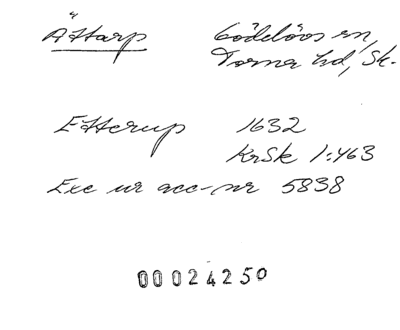 Ättarp Gödelövs sn,
Torna hd, Sk.
Etterup 1632
KrSk 1:463
Exc ur acc-nr 5838
00024250